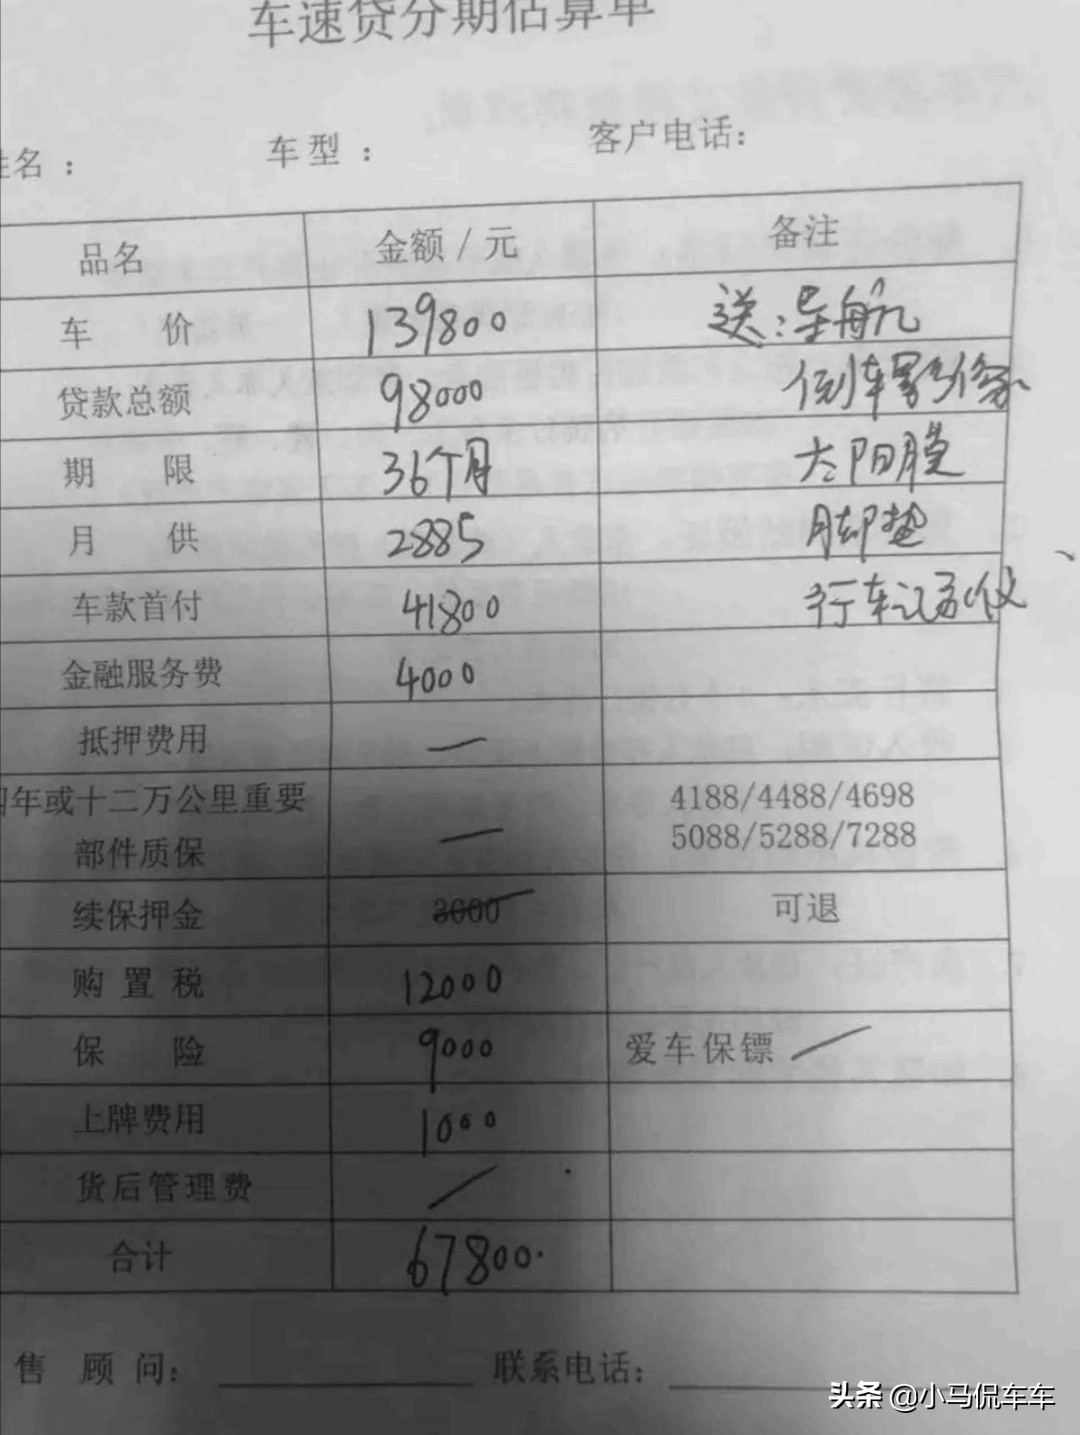 车速贷分期估算单
姓名： 车型： 客户电话：
品名 金额/元 备注
车 价 139800 送：导航
贷款总额 98000 倒车影像
期 限 36个月 太阳膜
月 供 2885 脚垫
车款首付 41800 行车记录仪
金融服务费 4000
抵押费用 —
四年或十二万公里重要 4188/4488/4698
部件质保 — 5088/5288/7288
续保押金 3000 可退
购置税 12000
保 险 9000 爱车保镖 /
上牌费用 1000
货后管理费 /
合计 67800.
售 顾 问： 联系电话：
头条 @小马侃车车